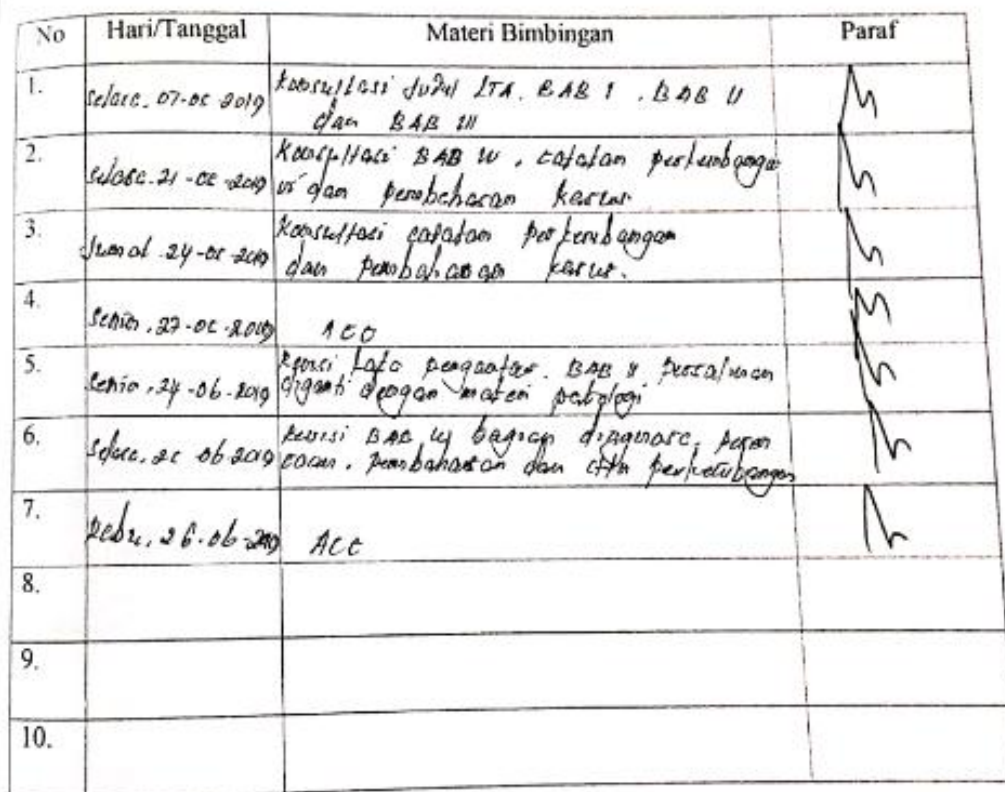 No Hari/Tanggal Materi Bimbingan Paraf
1. Selasa, 07-05-2019 Konsultasi Judul LTA, BAB I, BAB II
dan BAB III
2. Selasa, 21-05-2019 Konsultasi BAB IV, catatan perkembangan
dan pembahasan kasus
3. Jumat, 24-05-2019 Konsultasi catatan perkembangan
dan pembahasan kasus.
4. Senin, 27-05-2019 ACC
5. Senin, 24-06-2019 Revisi kata pengantar, BAB II persalinan
diganti dengan materi patologi
6. Selasa, 25-06-2019 Revisi BAB IV bagian diagnosa,
pembahasan dan cttn perkembangan
7. Rabu, 26-06-2019 ACC
8.
9.
10.